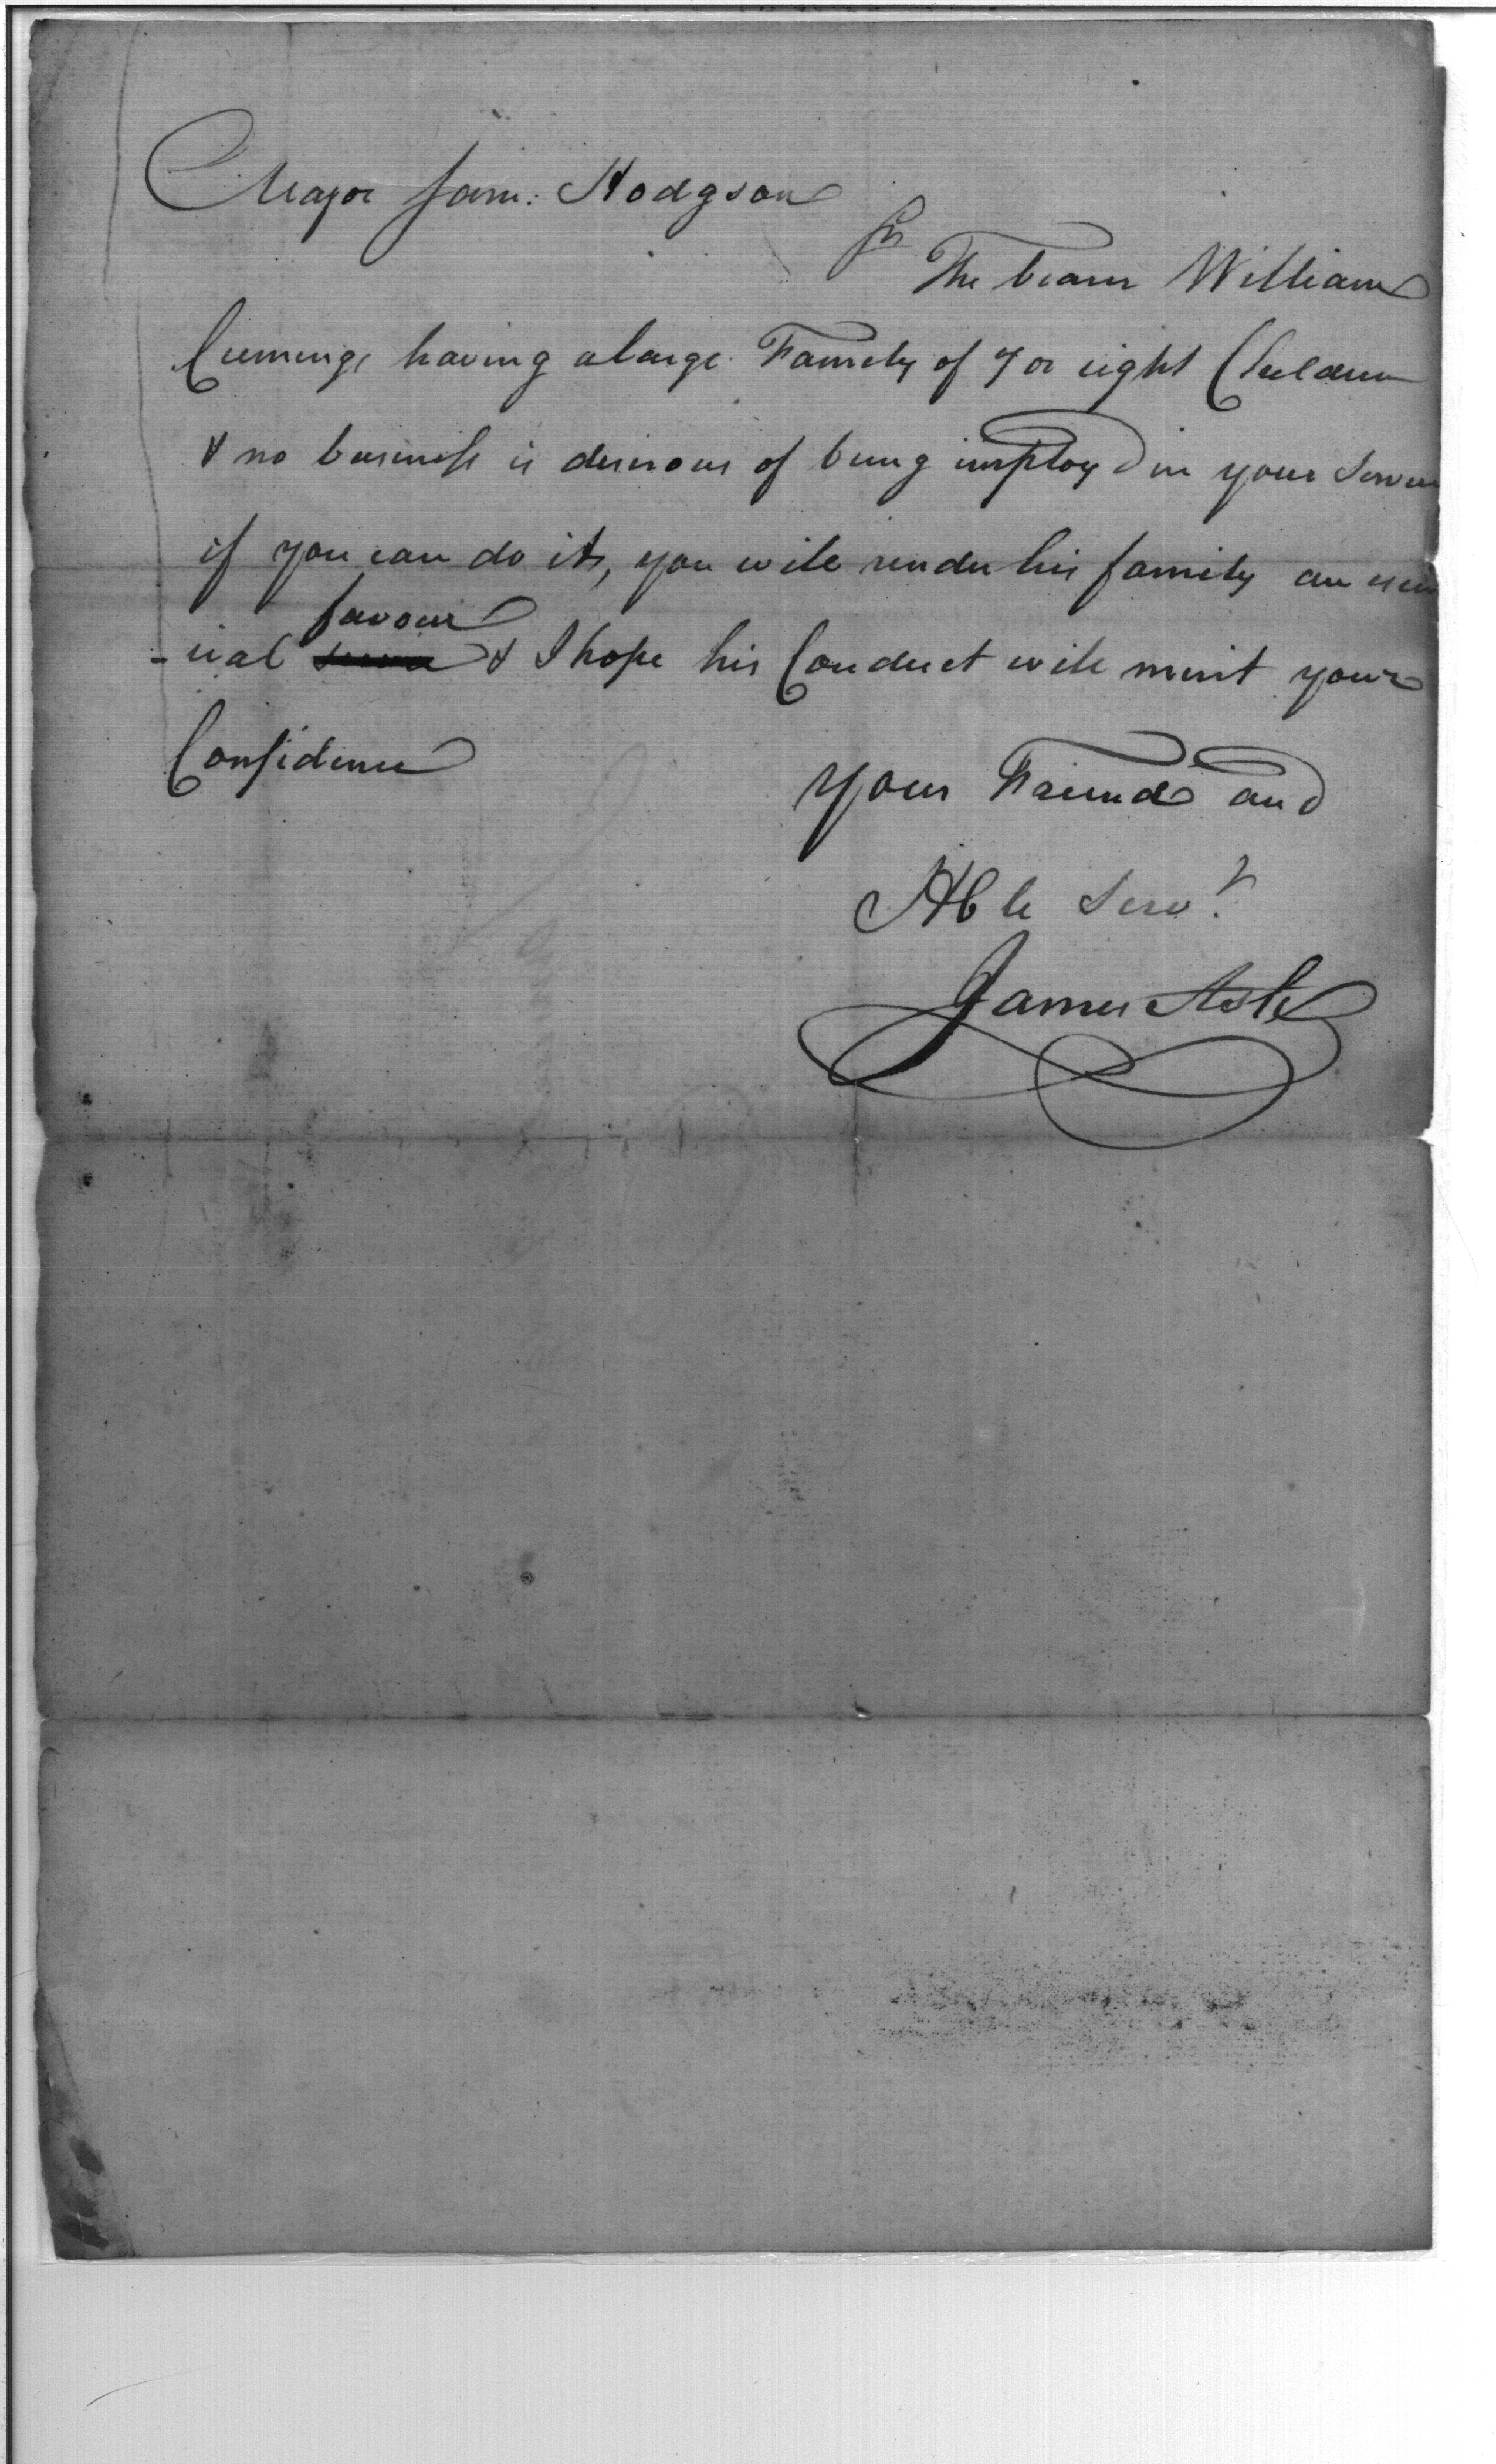 Major Sam: Hodgson
Sir
The bearer William
Cumings having a large Family of 7 or eight Children
& no business is desirous of being imployd in your Service
if you can do it, you will render his family an essen
-cial favour & I hope his Conduct will merit your
Confidence
Your Friend and
Hble Servt
James Ash